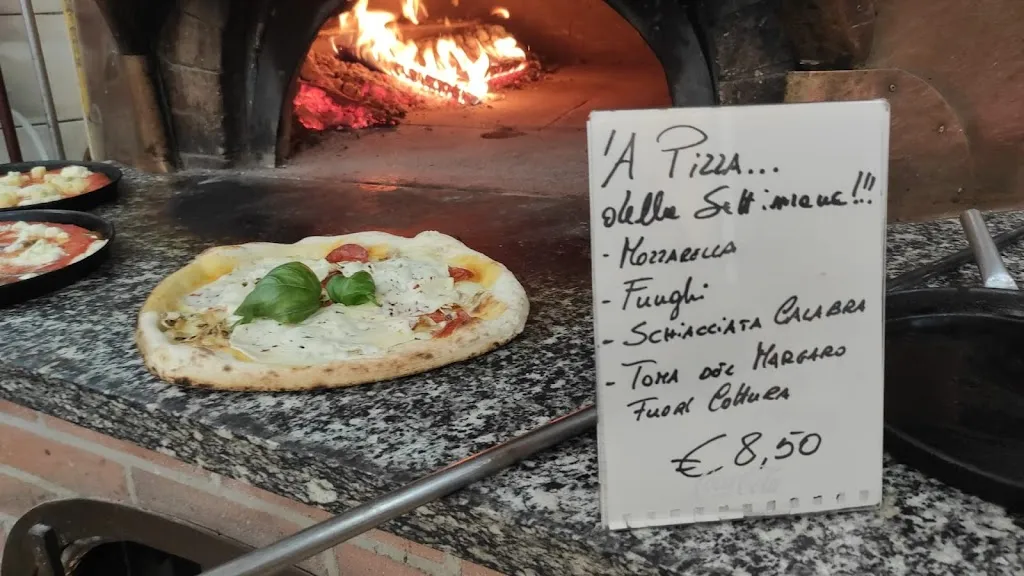 'A Pizza...
della Settimana!!!
- Mozzarella
- Funghi
- Schiacciata Calabra
- Toma del Margaro
Fuori Cottura
€ 8,50